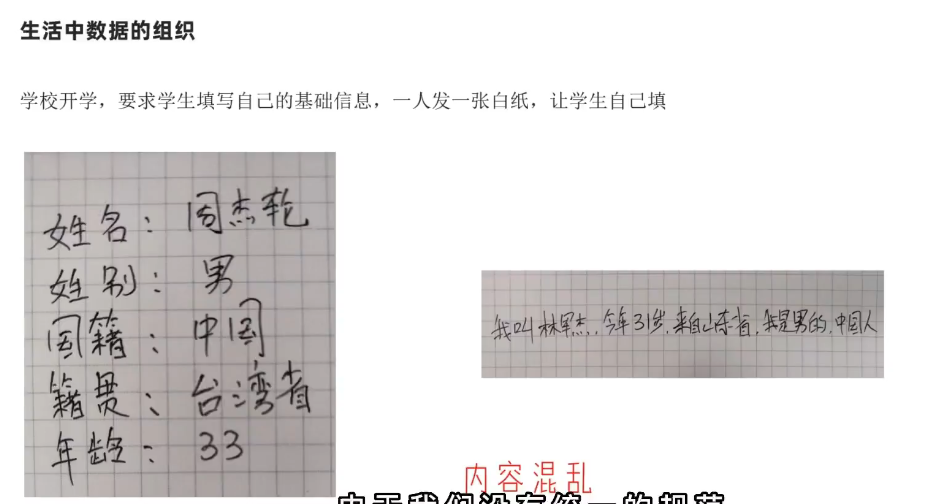 生活中数据的组织
学校开学，要求学生填写自己的基础信息，一人发一张白纸，让学生自己填
姓名：周杰轮
姓别：男
国籍：中国
籍贯：台湾省
年龄：33
我叫林军杰，今年31岁，来自山东省，我是男的，中国人
内容混乱
由于我们没有统一的规范